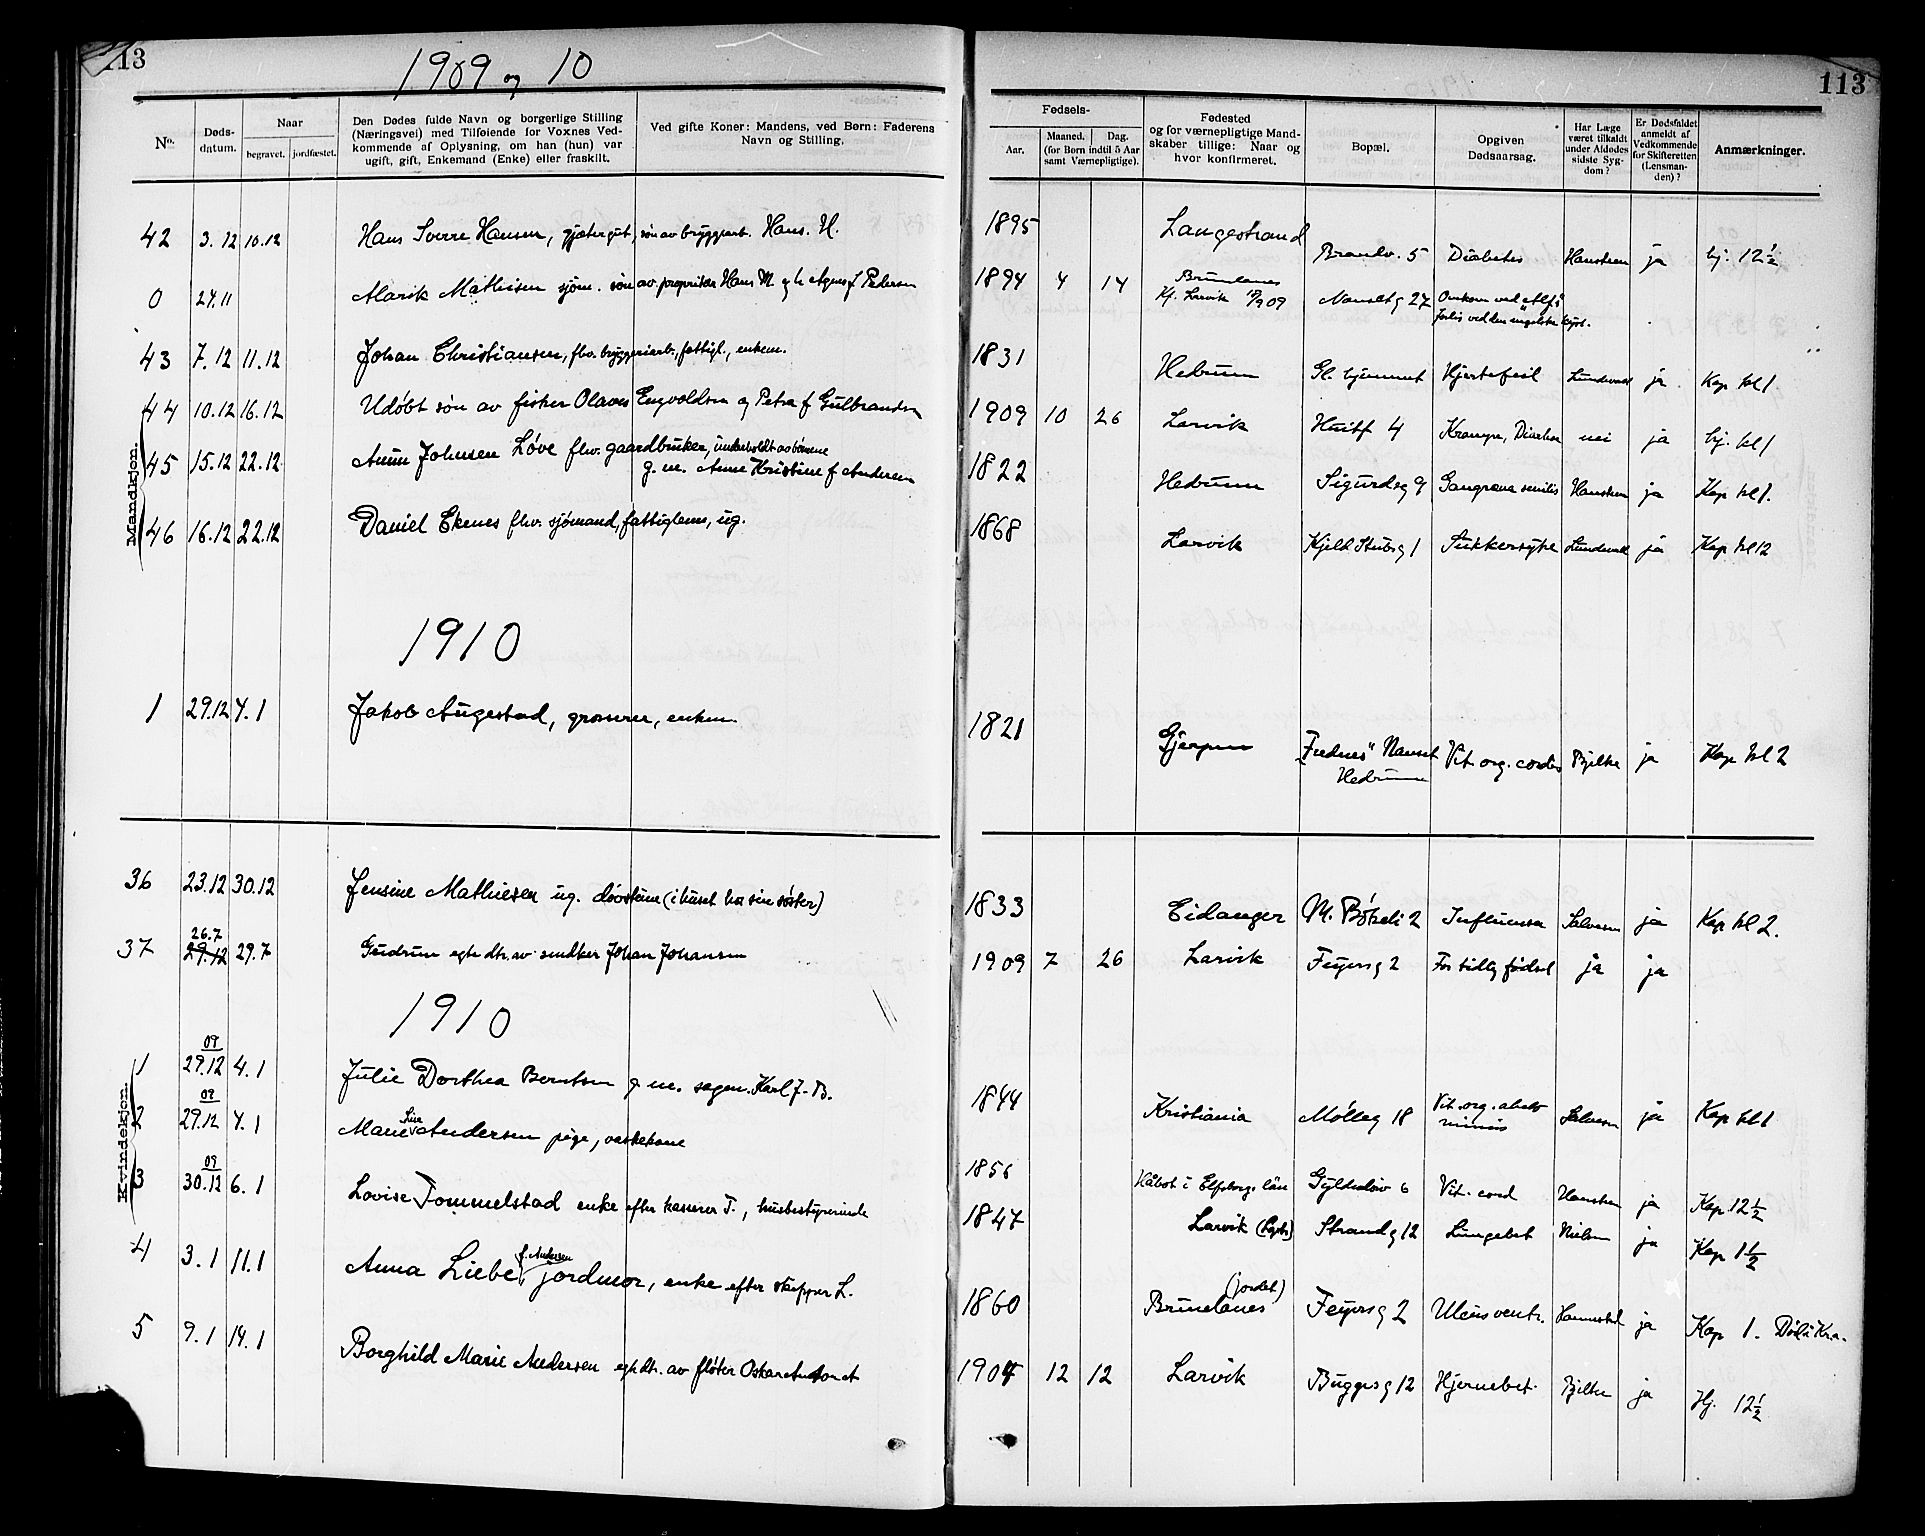 113
1909 og 10
113
No.
Døds-
datum.
Naar
begravet.
jordfæstet.
Den Dødes fulde Navn og borgerlige Stilling
(Næringsvei) med Tilføiende for Voxnes Ved-
kommende af Oplysning, om han (hun) var
ugift, gift, Enkemand (Enke) eller fraskilt.
Ved gifte Koner: Mandens, ved Børn: Faderens
Navn og Stilling.
Fødsels-
Aar.
Maaned.
Dag.
(for Børn indtil 5 Aar
samt Værnepligtige).
Fødested
og for værnepligtige Mand-
skaber tillige: Naar og
hvor konfirmeret.
Bopæl.
Opgiven
Dødsaarsag.
Har Læge
været tilkaldt
under Afdødes
sidste Syg-
dom?
Er Dødsfaldet
anmeldt af
Vedkommende
for Skifteretten
(Lensman-
den)?
Anmærkninger.
Mandkjøn.
42 3.12 10.12 Hans Sverre Hansen, gjætergut, søn av bryggearb. Hans H. 1895 Langestrand Brandv. 5 Diabetes Hansteen ja hj. 12½
0 24.11 Alarik Mathisen sjøm. søn av proprietær Hans M og h Agnes f Pedersen 1894 4 14 Brunlanes
Kf. Larvik 09 Nansetg 27 Omkom ved "Alf"s
forlis ved den engelske kyst.
43 7.12 11.12 Johan Christiansen, fhv. bryggeriarb., fattigl., enkem. 1831 Hedrum Gl. hjemmet Hjertefeil Lundevall ja Kap kl 1
44 10.12 16.12 Udøbt søn av fisker Olaves Engvoldsen og Petra f Gulbrandsen 1909 10 26 Larvik Huitf 4 Krampe, Diarrhea nei ja hj. kl 1
45 15.12 22.12 Anun Johnsen Løve fhv. gaardbruker, underholdt av børnene
g. m. Anne Kristine f Andersen 1822 Hedrum Sigurdsg 9 Gangræna senilis Hansteen ja Kap kl 1.
46 16.12 22.12 Daniel Ekenes fhv. sjømand, fattiglem, ug. 1868 Larvik Kjeld Stubsg 1 Sukkersyke Lundevall ja Kap kl 12
1910
1 29.12 4.1 Jakob Augestad, grosserer, enkem. 1821 Gjerpen "Frednes" Nanset
Hedrum Vit. org. cordis Bjelke ja Kap kl 2
Kvindekjøn.
36 23.12 30.12 Jensine Mathiesen ug. døvstum (i huset hos sin søster) 1833 Eidanger N. Bøkeli 2 Influensa Salvesen ja Kap kl 2.
37 26.7
29.12 29.7 Gudrun egte dtr. av snedker Johan Johansen 1909 7 26 Larvik Feyersg 2 For tidlig fødsel ja ja
1910
1 09
29.12 4.1 Julie Dorthea Berntsen g. m. sagm. Karl J. B. 1844 Kristiania Mølleg 18 Vit. org. Salvesen ja Kap kl 1
2 09
29.12 4.1 Marie Line Andersen pige, vaskekone 1856 Håbol i Elfsborgs län Gyldenløv 6 Vit. cord Hansteen ja Kap 12½
3 09
30.12 6.1 Lovise Tommelstad enke efter kasserer T., husbestyrerinde 1847 Larvik Strandg 12 Lungebet Nielsen ja Kap 1½
4 3.1 11.1 Anna Liebe f. Andersen jordmor, enke efter skipper L. 1860 Brunlanes (jordet) Feyersg 2 Ulcus ventr. ja Kap 1. Død i Kra.
5 9.1 14.1 Borghild Marie Andersen egte dtr. av fløter Oskar Anton A 1904 12 12 Larvik Buggesg 12 Hjernebet. Bjelke ja Hj. 12½